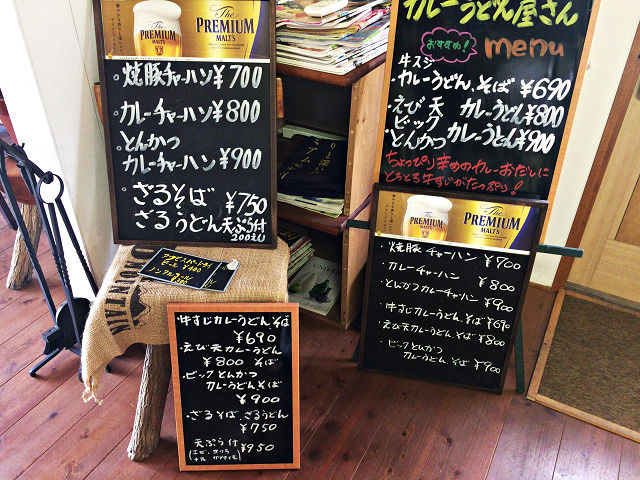 The
PREMIUM
MALT'S
焼豚チャーハン ¥700
カレーチャーハン ¥800
とんかつ
カレーチャーハン ¥900
ざるそば ¥750
ざるうどん天ぷら付
200えん
カレーうどん屋さん
おすすめ!
menu
牛スジ
カレーうどん、そば ¥690
えび天 カレーうどん ¥800
ビック
とんかつ カレーうどん ¥900
ちょっぴり辛めのカレーおだしに
とろとろ牛すじがたっぷり!
The
PREMIUM
MALT'S
・焼豚チャーハン ¥700
・カレーチャーハン
¥800
・とんかつカレーチャーハン
¥900
・牛すじカレーうどん、そば ¥690
・えび天カレーうどん、そば ¥800
・ビックとんかつ
カレーうどん、そば ¥900
ビール
ノンアルコール
・牛すじカレーうどん そば
¥690
・えび天カレーうどん
¥800 そば
・ビックとんかつ
カレーうどんそば
¥900
・ざるそば、ざるうどん
¥750
天ぷら付 ¥950